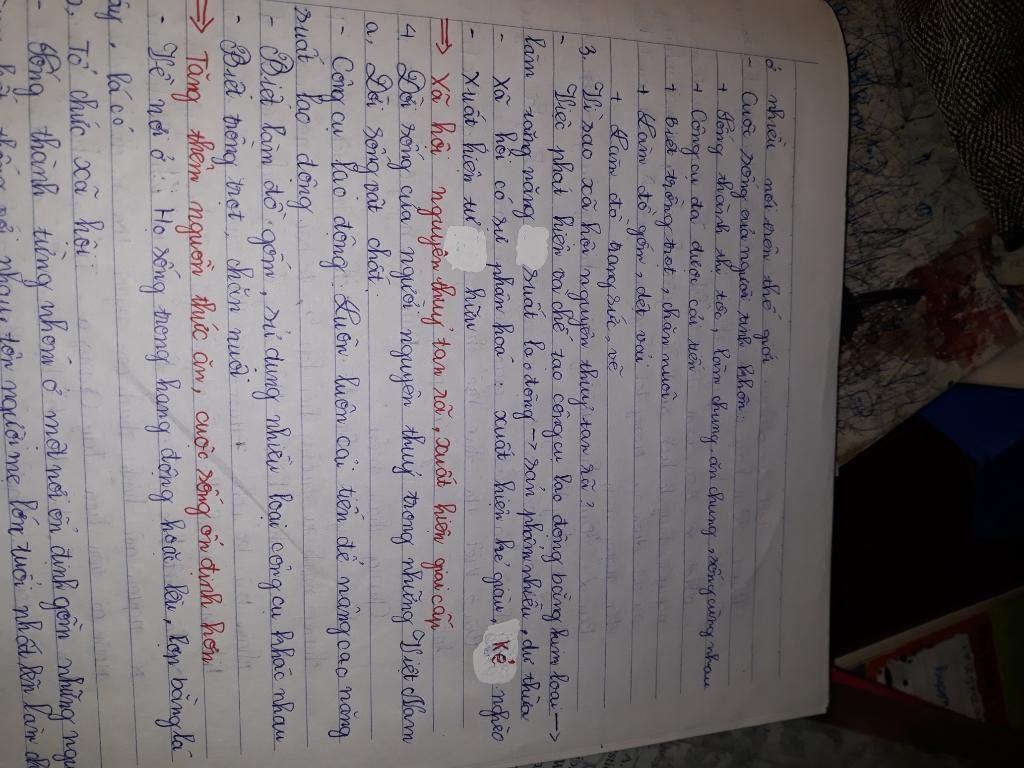 ở nhiều nơi trên thế giới
- Cuối sống của người tinh khôn:
+ Sống thành thị tộc, làm chung, ăn chung, sống cùng nhau
+ Công cụ đá được cải tiến
+ Biết trồng trọt, chăn nuôi
+ Làm đồ gốm, dệt vải
+ Làm đồ trang sức, vẽ
3. Vì sao xã hội nguyên thuỷ tan rã?
- Việc phát hiện và chế tạo công cụ lao động bằng kim loại →
làm tăng năng suất lao động → sản phẩm nhiều, dư thừa
- Xã hội có sự phân hoá: xuất hiện kẻ giàu, kẻ nghèo
- Xuất hiện tư hữu
⇒ Xã hội nguyên thuỷ tan rã, xuất hiện giai cấp
4 Đời sống của người nguyên thuỷ trong những Việt Nam
a, Đời sống vật chất.
- Công cụ lao động: Luôn luôn cải tiến để nâng cao năng
suất lao động
- Biết làm đồ gốm, sử dụng nhiều loại công cụ khác nhau
- Biết trồng trọt, chăn nuôi
⇒ Tăng thêm nguồn thức ăn, cuộc sống ổn định hơn
- Về nơi ở: Họ sống trong hang động hoặc lều, lợp bằng lá
cây, lá cỏ
b, Tổ chức xã hội
- Sống thành từng nhóm ở một nơi ổn định gồm những
thống với nhau, tôn người mẹ lớn tuổi nhất lên làm